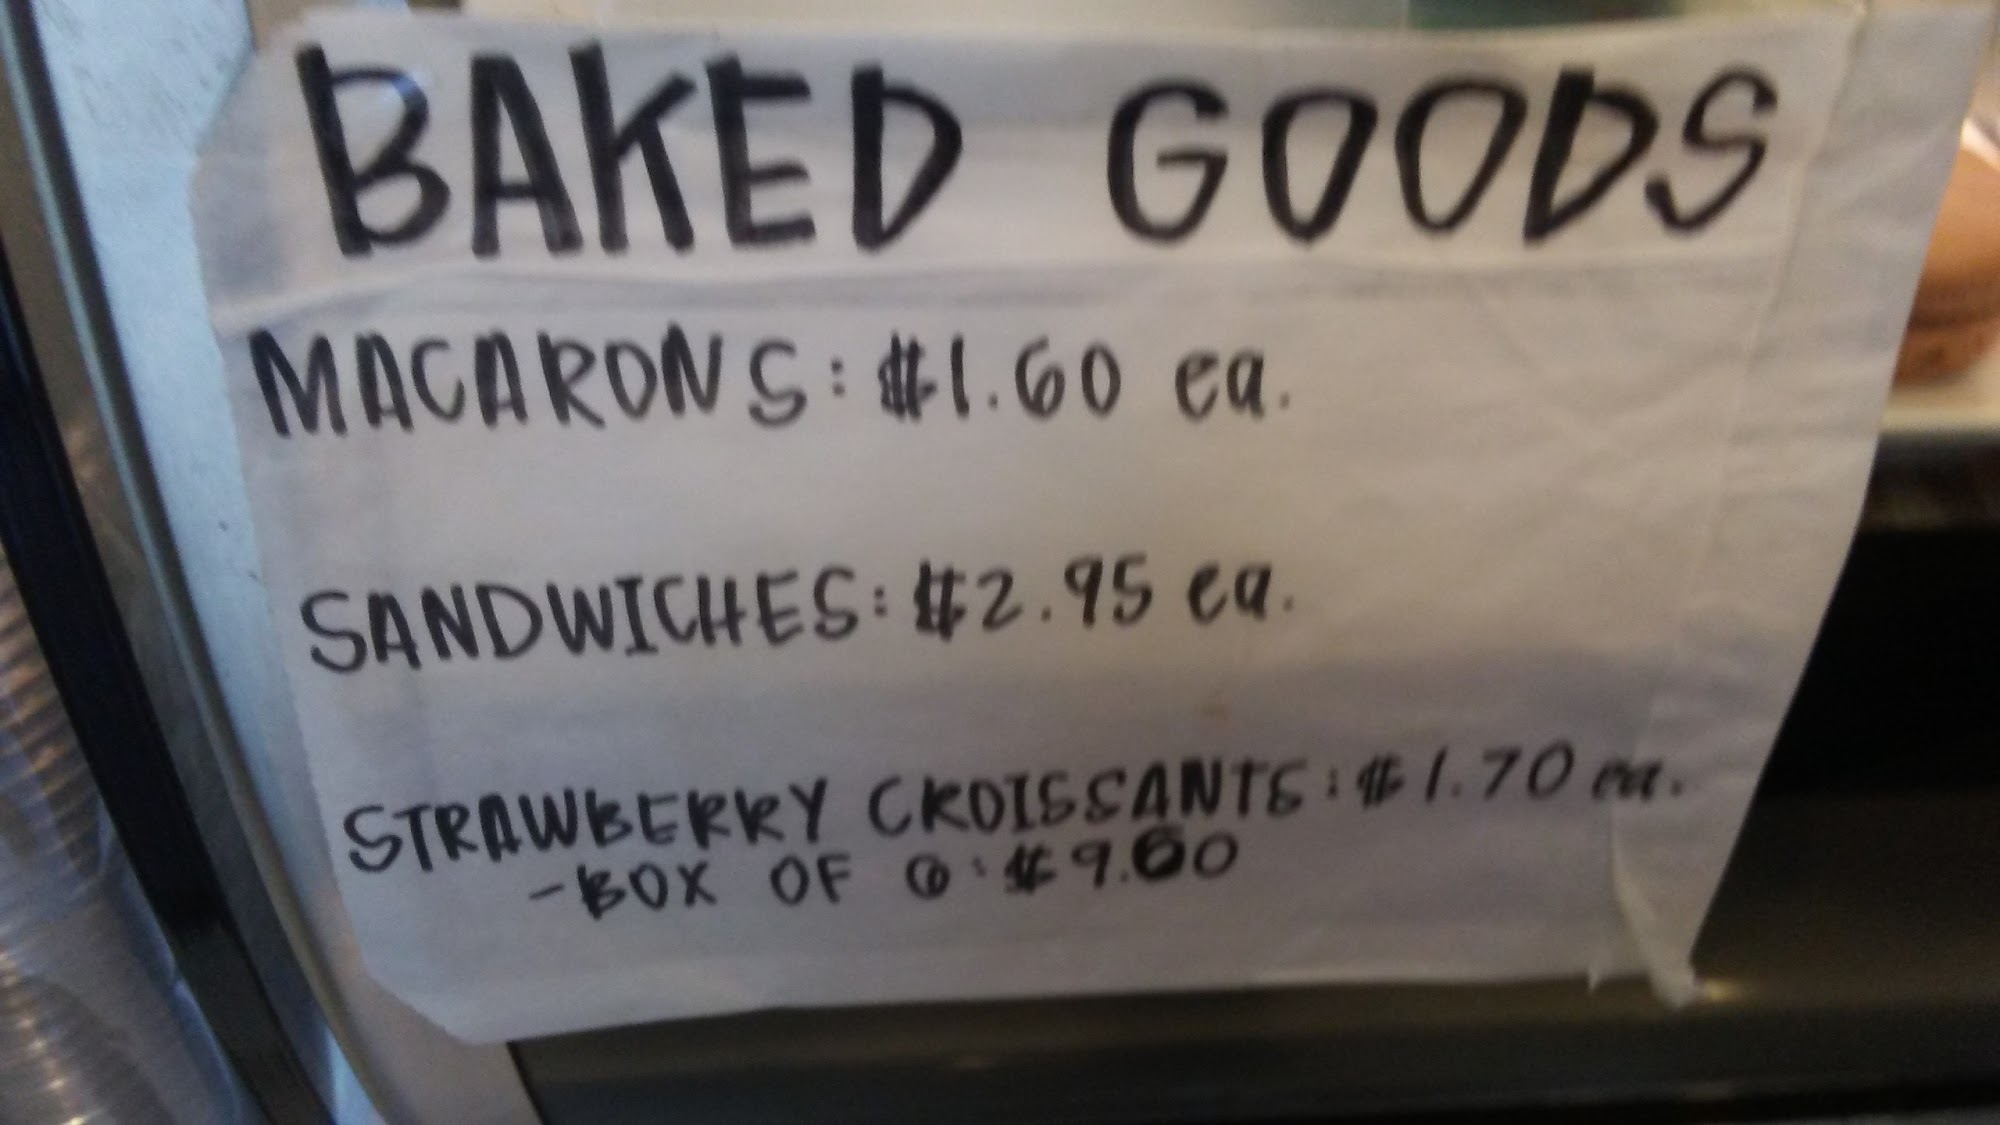 BAKED GOODS
MACARONS: $1.60 ea.
SANDWICHES: $2.95 ea.
STRAWBERRY CROISSANTS: $1.70 ea.
-BOX OF 6: $9.60